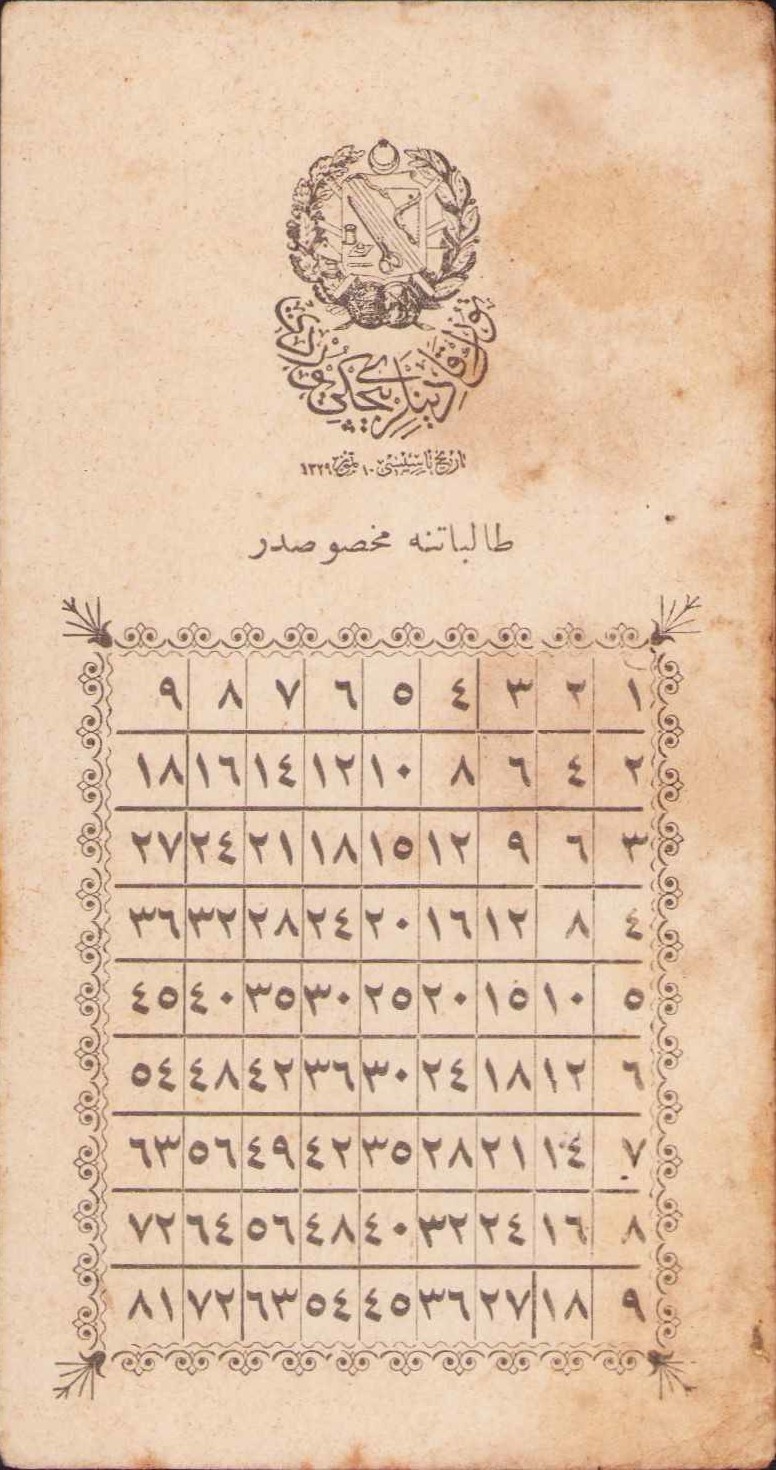 تورك قادینلری بیچكی یوردی
تاریخ تأسیسی ١٠ تموز ١٣٢٩
طالباتنه مخصوصدر
١ ٢ ٣ ٤ ٥ ٦ ٧ ٨ ٩
٢ ٤ ٦ ٨ ١٠ ١٢ ١٤ ١٦ ١٨
٣ ٦ ٩ ١٢ ١٥ ١٨ ٢١ ٢٤ ٢٧
٤ ٨ ١٢ ١٦ ٢٠ ٢٤ ٢٨ ٣٢ ٣٦
٥ ١٠ ١٥ ٢٠ ٢٥ ٣٠ ٣٥ ٤٠ ٤٥
٦ ١٢ ١٨ ٢٤ ٣٠ ٣٦ ٤٢ ٤٨ ٥٤
٧ ١٤ ٢١ ٢٨ ٣٥ ٤٢ ٤٩ ٥٦ ٦٣
٨ ١٦ ٢٤ ٣٢ ٤٠ ٤٨ ٥٦ ٦٤ ٧٢
٩ ١٨ ٢٧ ٣٦ ٤٥ ٥٤ ٦٣ ٧٢ ٨١